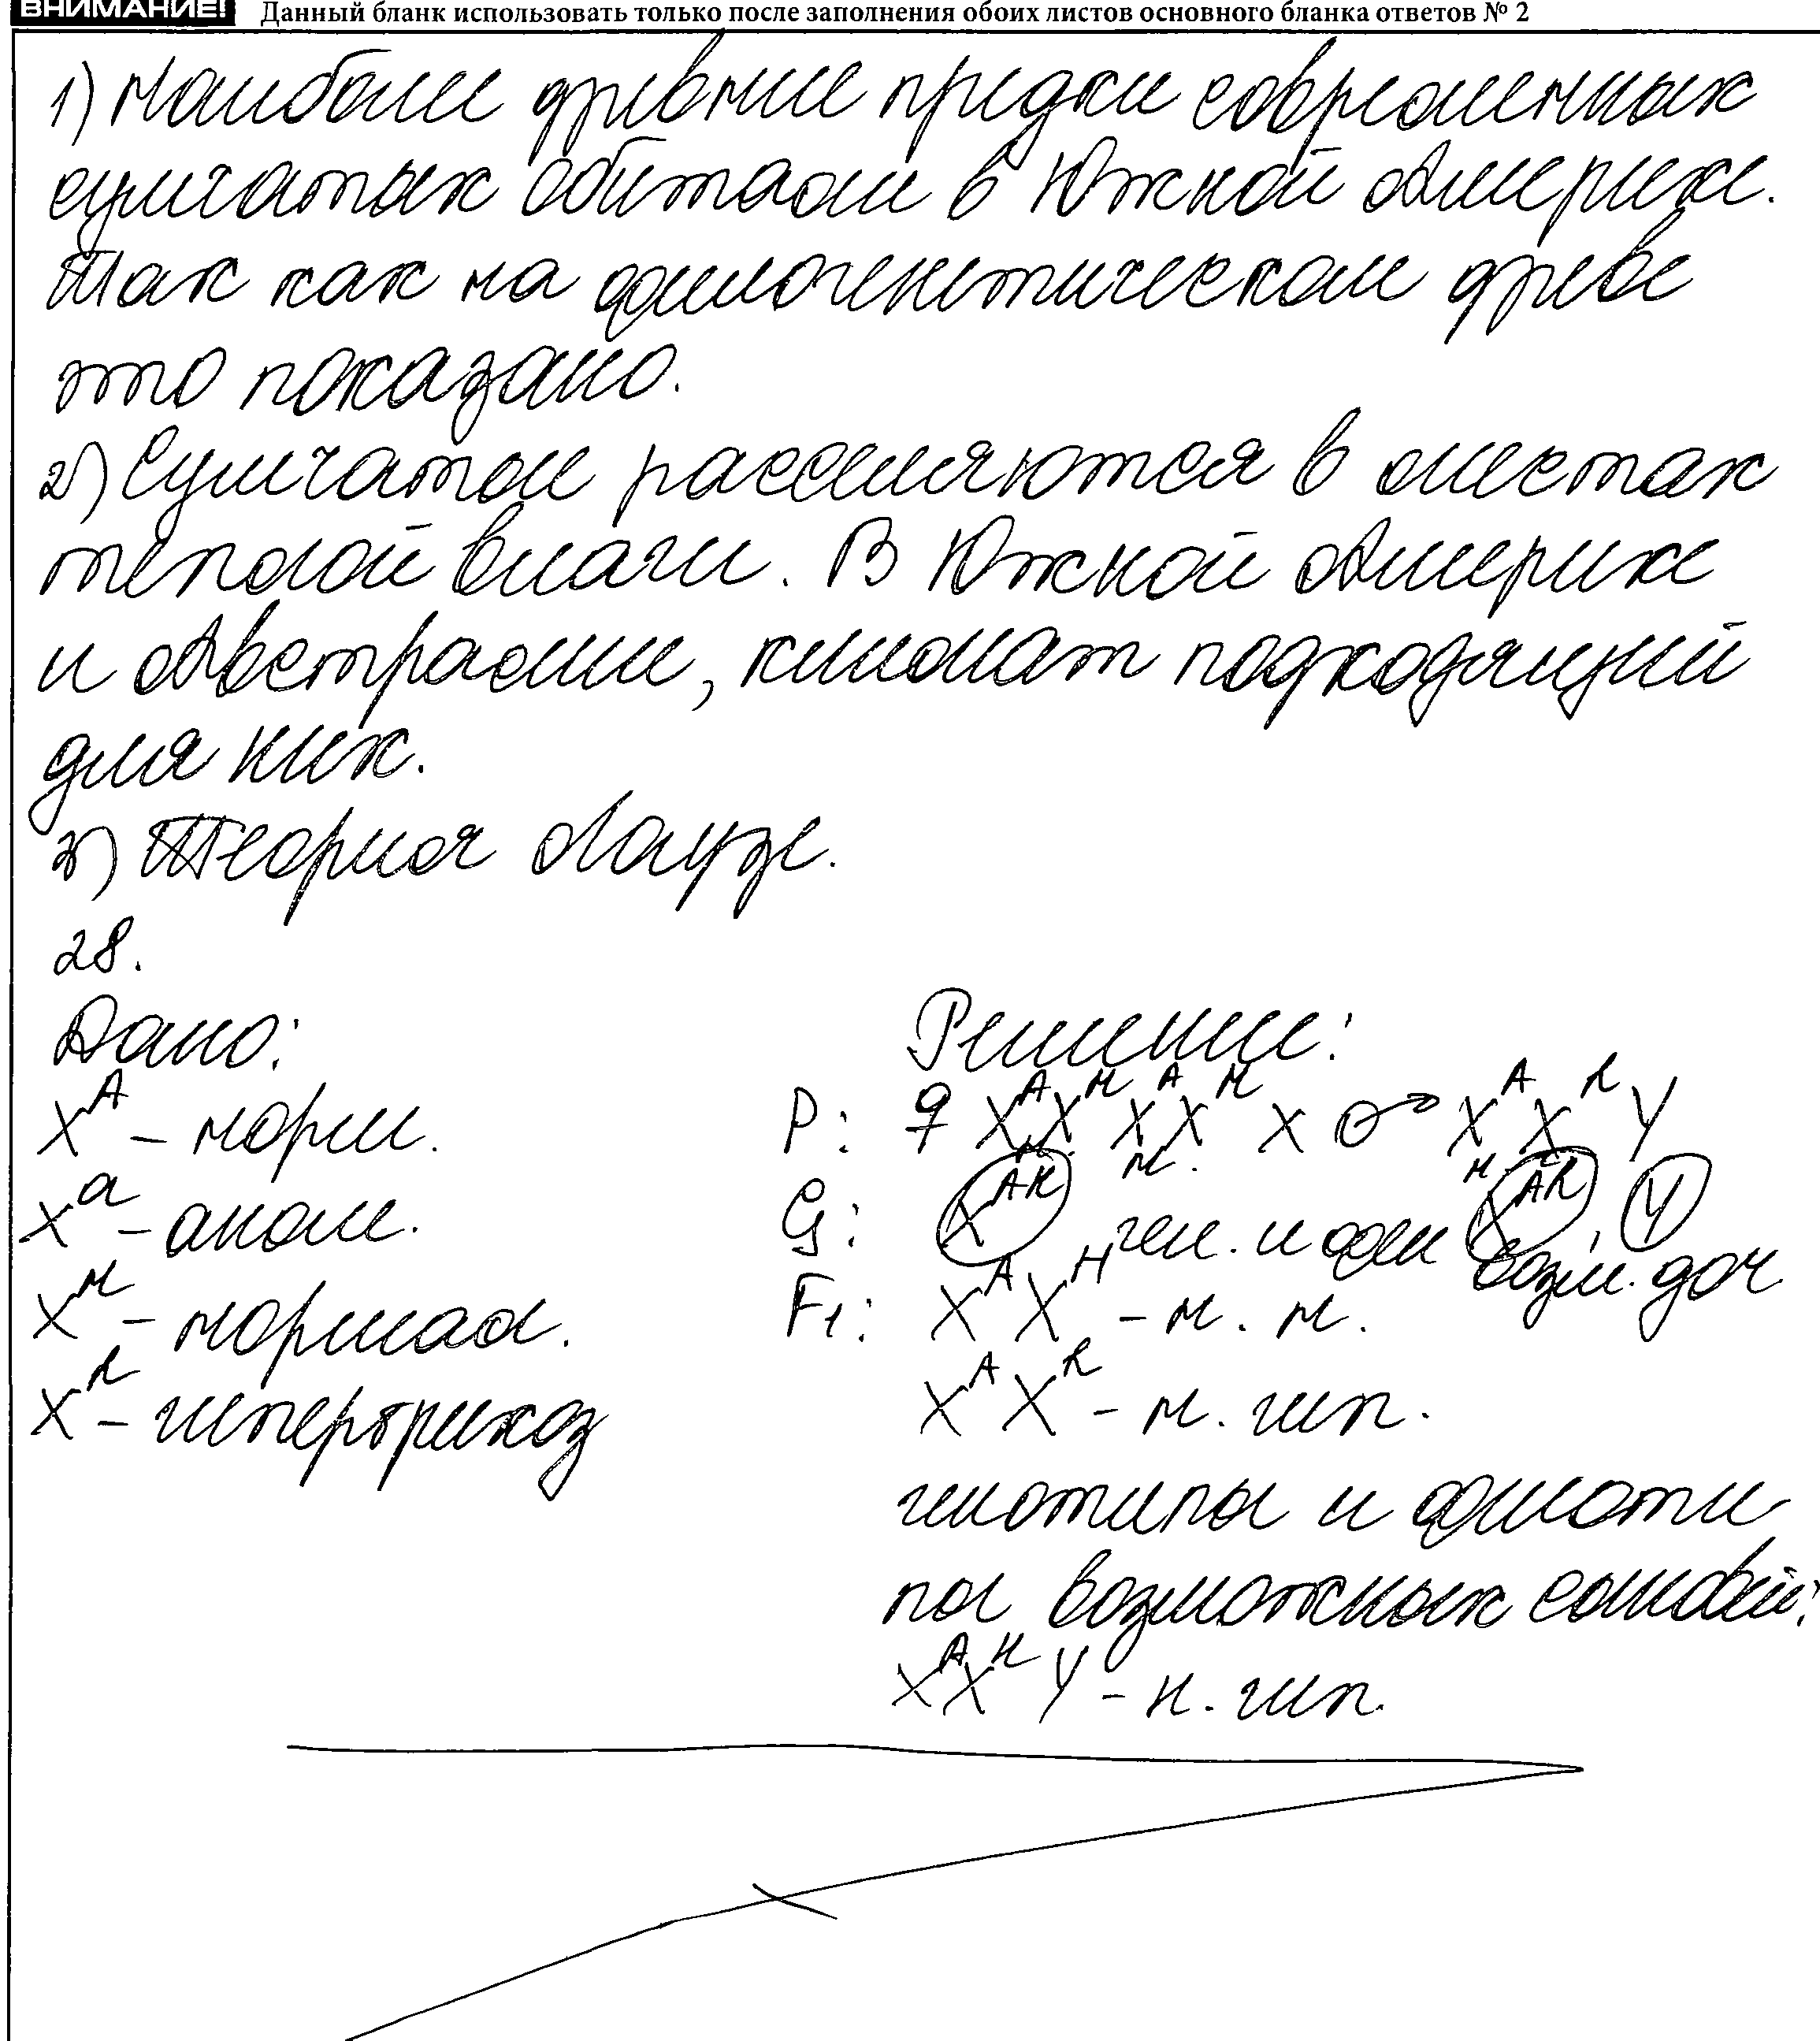 ВНИМАНИЕ! Данный бланк использовать только после заполнения обоих листов основного бланка ответов № 2
1) Наиболее древние предки современных
сумчатых обитали в Южной Америке.
Так как на филогенетическом древе
это показано.
2) Сумчатые расселяются в местах
теплой влаги. В Южной Америке
и Австралии, климат подходящий
для них.
3) Теория Маузе.
28.
Дано: Решение:
X^A - норм. P: ♀ X^A X^H X^A X^H x ♂ X^A X^R Y
н. н. н.
X^a - аном. G: X^AH X^AR, Y
ген. и фен возм. доч
X^н - нормал. F1: X^A X^H - н. н.
X^R - гипертрихоз X^A X^R - н. гип.
генотипы и феноти
пы возможных сыновей:
X^A X^H Y - н. гип.